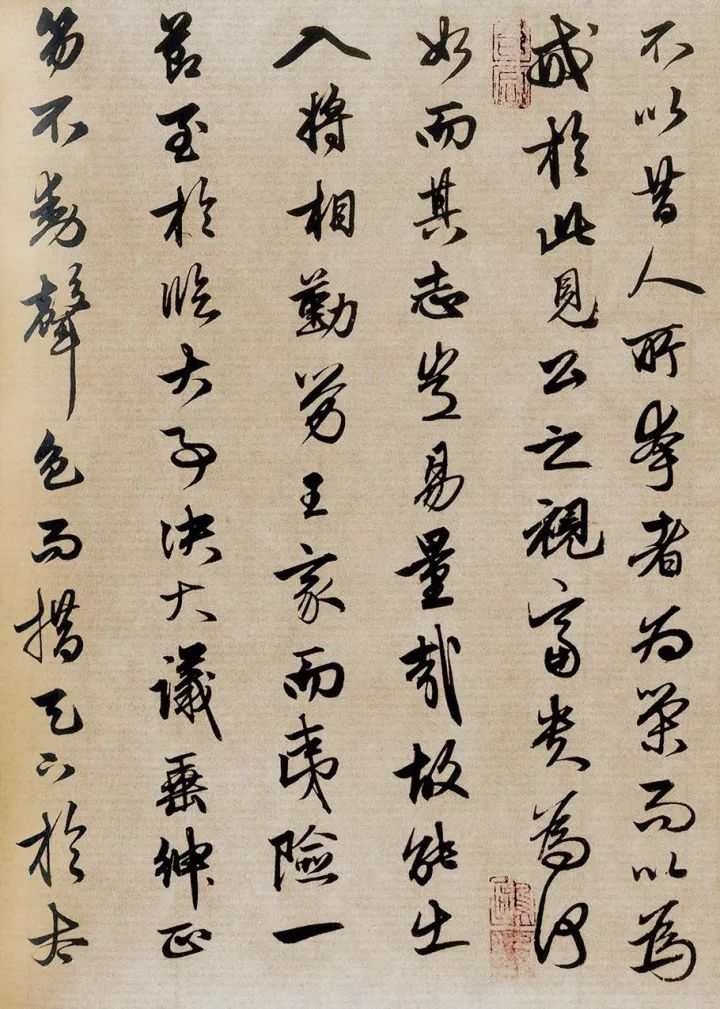 不以昔人所夸者為榮而以為
戒於此見公之視富貴為何
如而其志豈易量哉故能出
入將相勤勞王家而夷險一
節至於臨大事決大議垂紳正
笏不動聲色而措天下於太